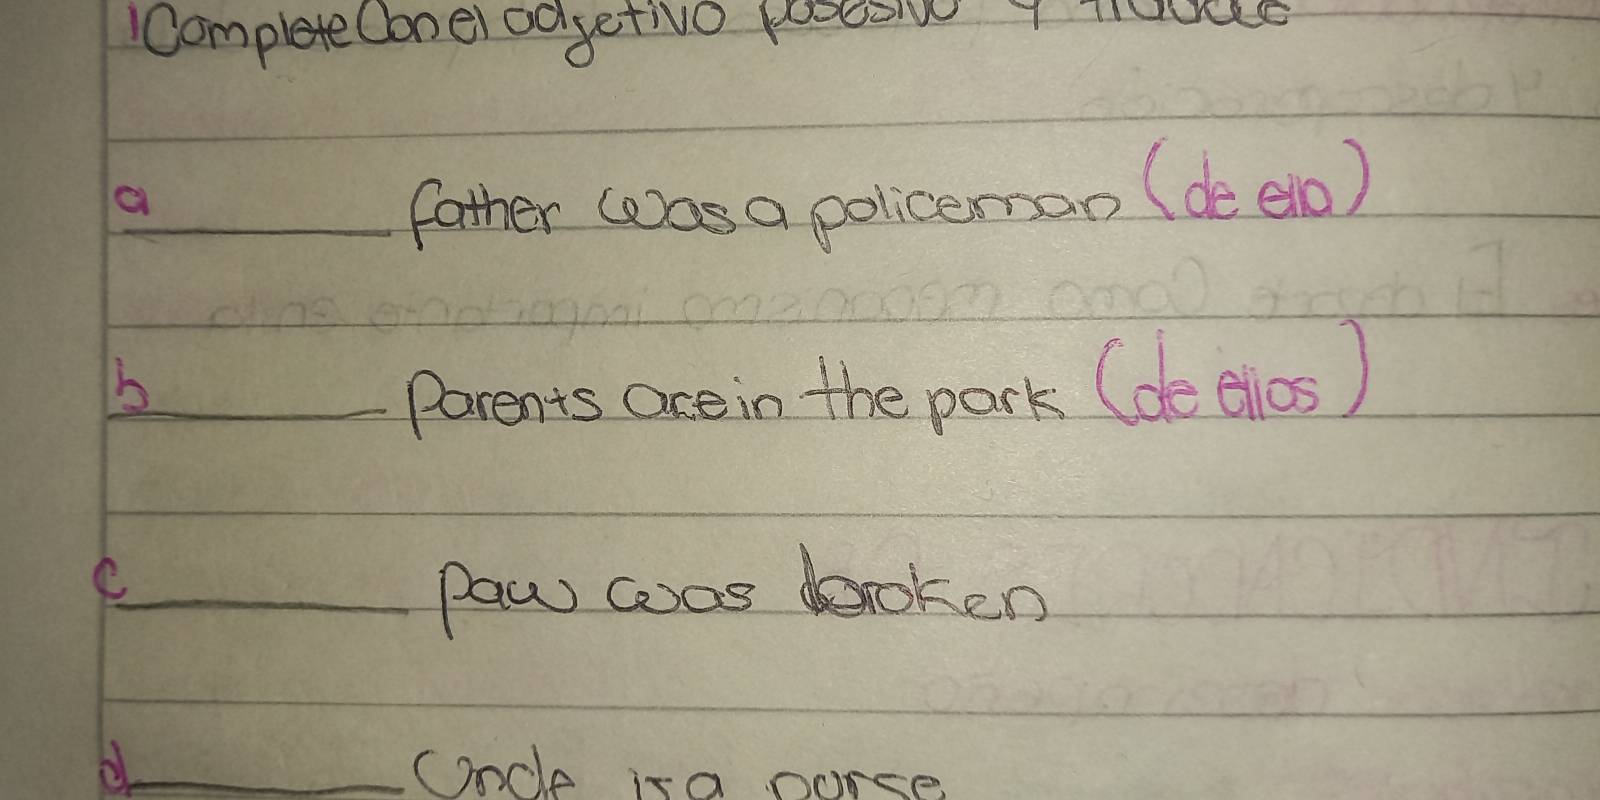 1 Complete Con el adjetivo posesivo y traduce
a ________ father was a policeman (de ella)
b ________ parents are in the park (de ellos)
c ________ paw was broken
d ________ Uncle is a nurse